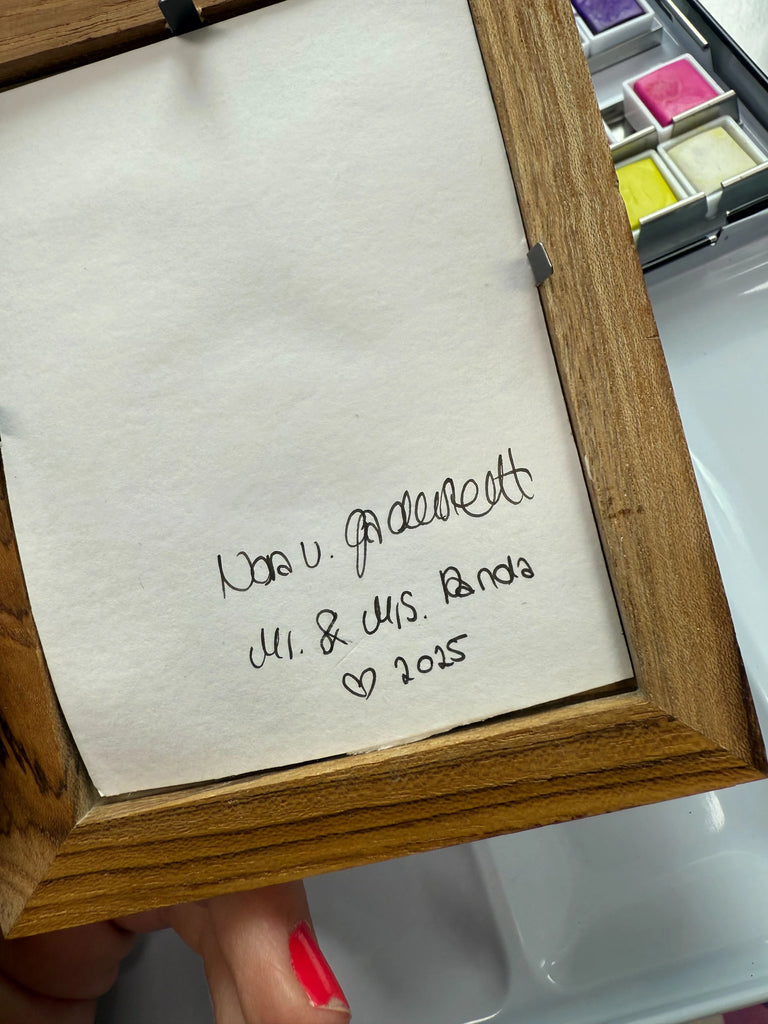 Nora v.
Mr. & Mrs. Panda
♡ 2025